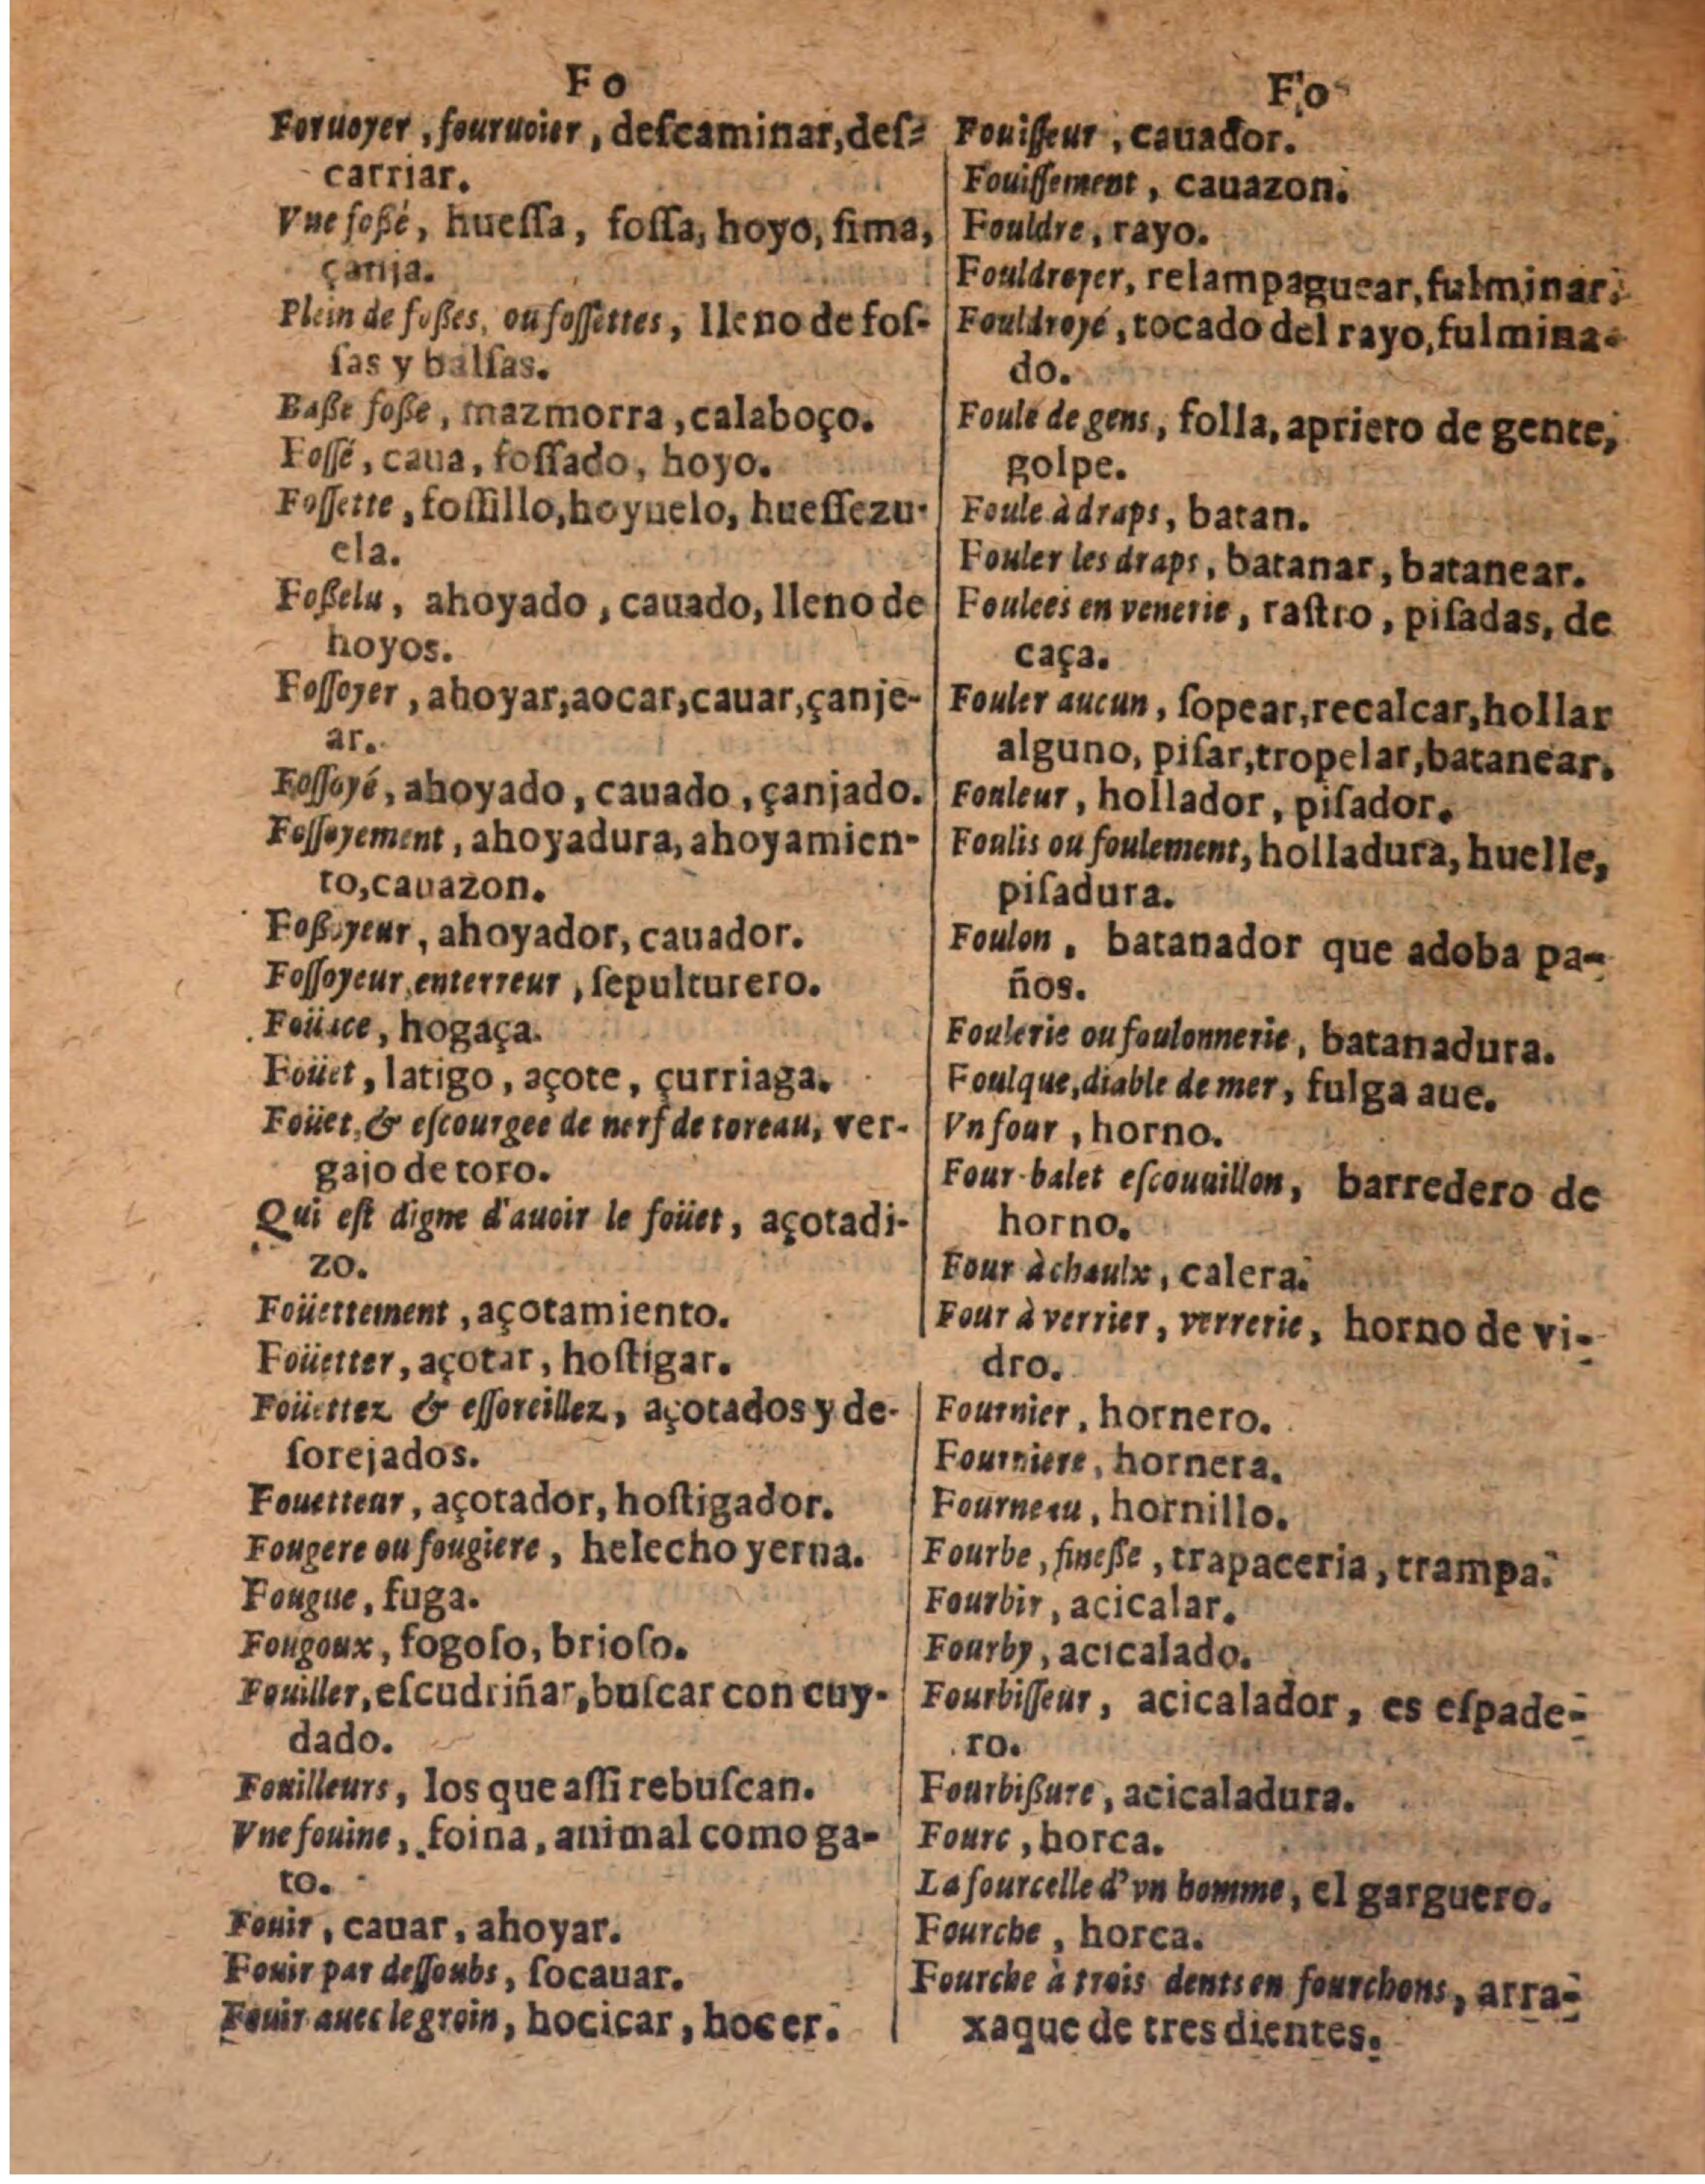 Fo
Foruoyer, fouruoier, deſcaminar, deſ-
carriar.
Vne foßé, hueſſa, foſſa, hoyo, ſima,
çanja.
Plein de foßes, ou foſſettes, lleno de foſ-
ſas y balſas.
Baße foße, mazmorra, calaboço.
Foſſé, caua, foſſado, hoyo.
Foſſette, foſſillo, hoyuelo, hueſſezu-
ela.
Foßelu, ahoyado, cauado, lleno de
hoyos.
Foſſoyer, ahoyar, aocar, cauar, çanje-
ar.
Foſſoyé, ahoyado, cauado, çanjado.
Foſſoyement, ahoyadura, ahoyamien-
to, cauazon.
Foßoyeur, ahoyador, cauador.
Foſſoyeur, enterreur, ſepulturero.
Foüace, hogaça.
Foüet, latigo, açote, çurriaga.
Foüet, & eſcourgee de nerf de toreau, ver-
gajo de toro.
Qui eſt digne d'auoir le foüet, açotadi-
zo.
Foüettement, açotamiento.
Foüetter, açotar, hoſtigar.
Foüettez & eſſoreillez, açotados y de-
ſorejados.
Fouetteur, açotador, hoſtigador.
Fougere ou fougiere, helecho yerna.
Fougue, fuga.
Fougoux, fogoſo, brioſo.
Fouiller, eſcudriñar, buſcar con cuy-
dado.
Fouilleurs, los que aſſi rebuſcan.
Vne fouine, foina, animal como ga-
to.
Fouir, cauar, ahoyar.
Fouir par deſſoubs, ſocauar.
Fouir auec le groin, hocicar, hocer.
Fo
Fouiſſeur, cauador.
Fouiſſement, cauazon.
Fouldre, rayo.
Fouldroyer, relampaguear, fulminar.
Fouldroyé, tocado del rayo, fulmina-
do.
Foule de gens, folla, aprieto de gente,
golpe.
Foule à draps, batan.
Fouler les draps, batanar, batanear.
Foulees en venerie, raſtro, piſadas, de
caça.
Fouler aucun, ſopear, recalcar, hollar
alguno, piſar, tropelar, batanear.
Fouleur, hollador, piſador.
Foulis ou foulement, holladura, huelle,
piſadura.
Foulon, batanador que adoba pa-
ños.
Foulerie ou foulonnerie, batanadura.
Foulque, diable de mer, fulga aue.
Vn four, horno.
Four-balet eſcouuillon, barredero de
horno.
Four à chaulx, calera.
Four à verrier, verrerie, horno de vi-
dro.
Fournier, hornero.
Fourniere, hornera.
Fourneau, hornillo.
Fourbe, fineße, trapaceria, trampa.
Fourbir, acicalar.
Fourby, acicalado.
Fourbiſſeur, acicalador, es eſpade-
ro.
Fourbißure, acicaladura.
Fourc, horca.
La fourcelle d'vn homme, el garguero.
Fourche, horca.
Fourche à trois dents en fourchons, arra-
xaque de tres dientes.